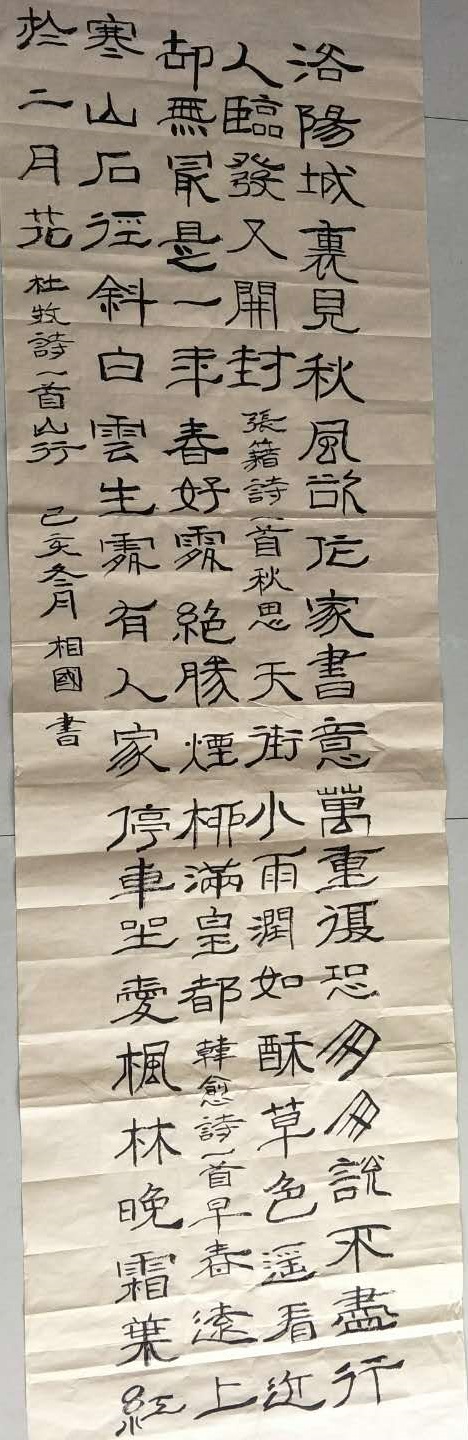 洛陽城裏見秋風欲作家書意萬重復恐匆匆說不盡行
人臨發又開封 張籍詩一首秋思 天街小雨潤如酥草色遥看近
却無最是一年春好處絕勝煙柳滿皇都 韓愈詩一首早春 遠上
寒山石徑斜白雲生處有人家停車坐愛楓林晚霜葉紅
於二月花 杜牧詩一首山行 己亥冬月 相國 書